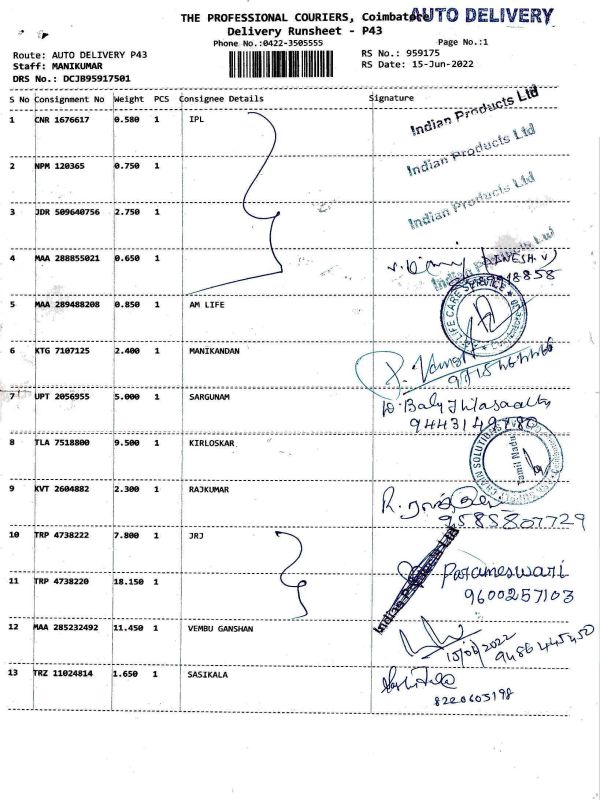 AUTO DELIVERY
THE PROFESSIONAL COURIERS, Coimbatore
Delivery Runsheet - P43
Phone No.:0422-3505555
Page No.:1
Route: AUTO DELIVERY P43
RS No.: 959175
Staff: MANIKUMAR
RS Date: 15-Jun-2022
DRS No.: DCJB95917501
S No Consignment No Weight PCS Consignee Details Signature
1 CNR 1676617 0.580 1 IPL Indian Products Ltd
2 NPM 120365 0.750 1 Indian Products Ltd
3 JDR 509640756 2.750 1 Indian Products Ltd
4 MAA 288855021 0.650 1 Indian Products Ltd
5 MAA 289488208 0.850 1 AM LIFE LIFE CARE SERVICE
6 KTG 7107125 2.400 1 MANIKANDAN
7 UPT 2056955 5.000 1 SARGUNAM
8 TLA 7518800 9.500 1 KIRLOSKAR Tamil Nadu
9 KVT 2604882 2.300 1 RAJKUMAR
9585807729
10 TRP 4738222 7.800 1 JRJ
11 TRP 4738220 18.150 1 Parameswari
9600257103
12 MAA 285232492 11.450 1 VEMBU GANSHAN
15/06/2022
13 TRZ 11024814 1.650 1 SASIKALA
8220605198